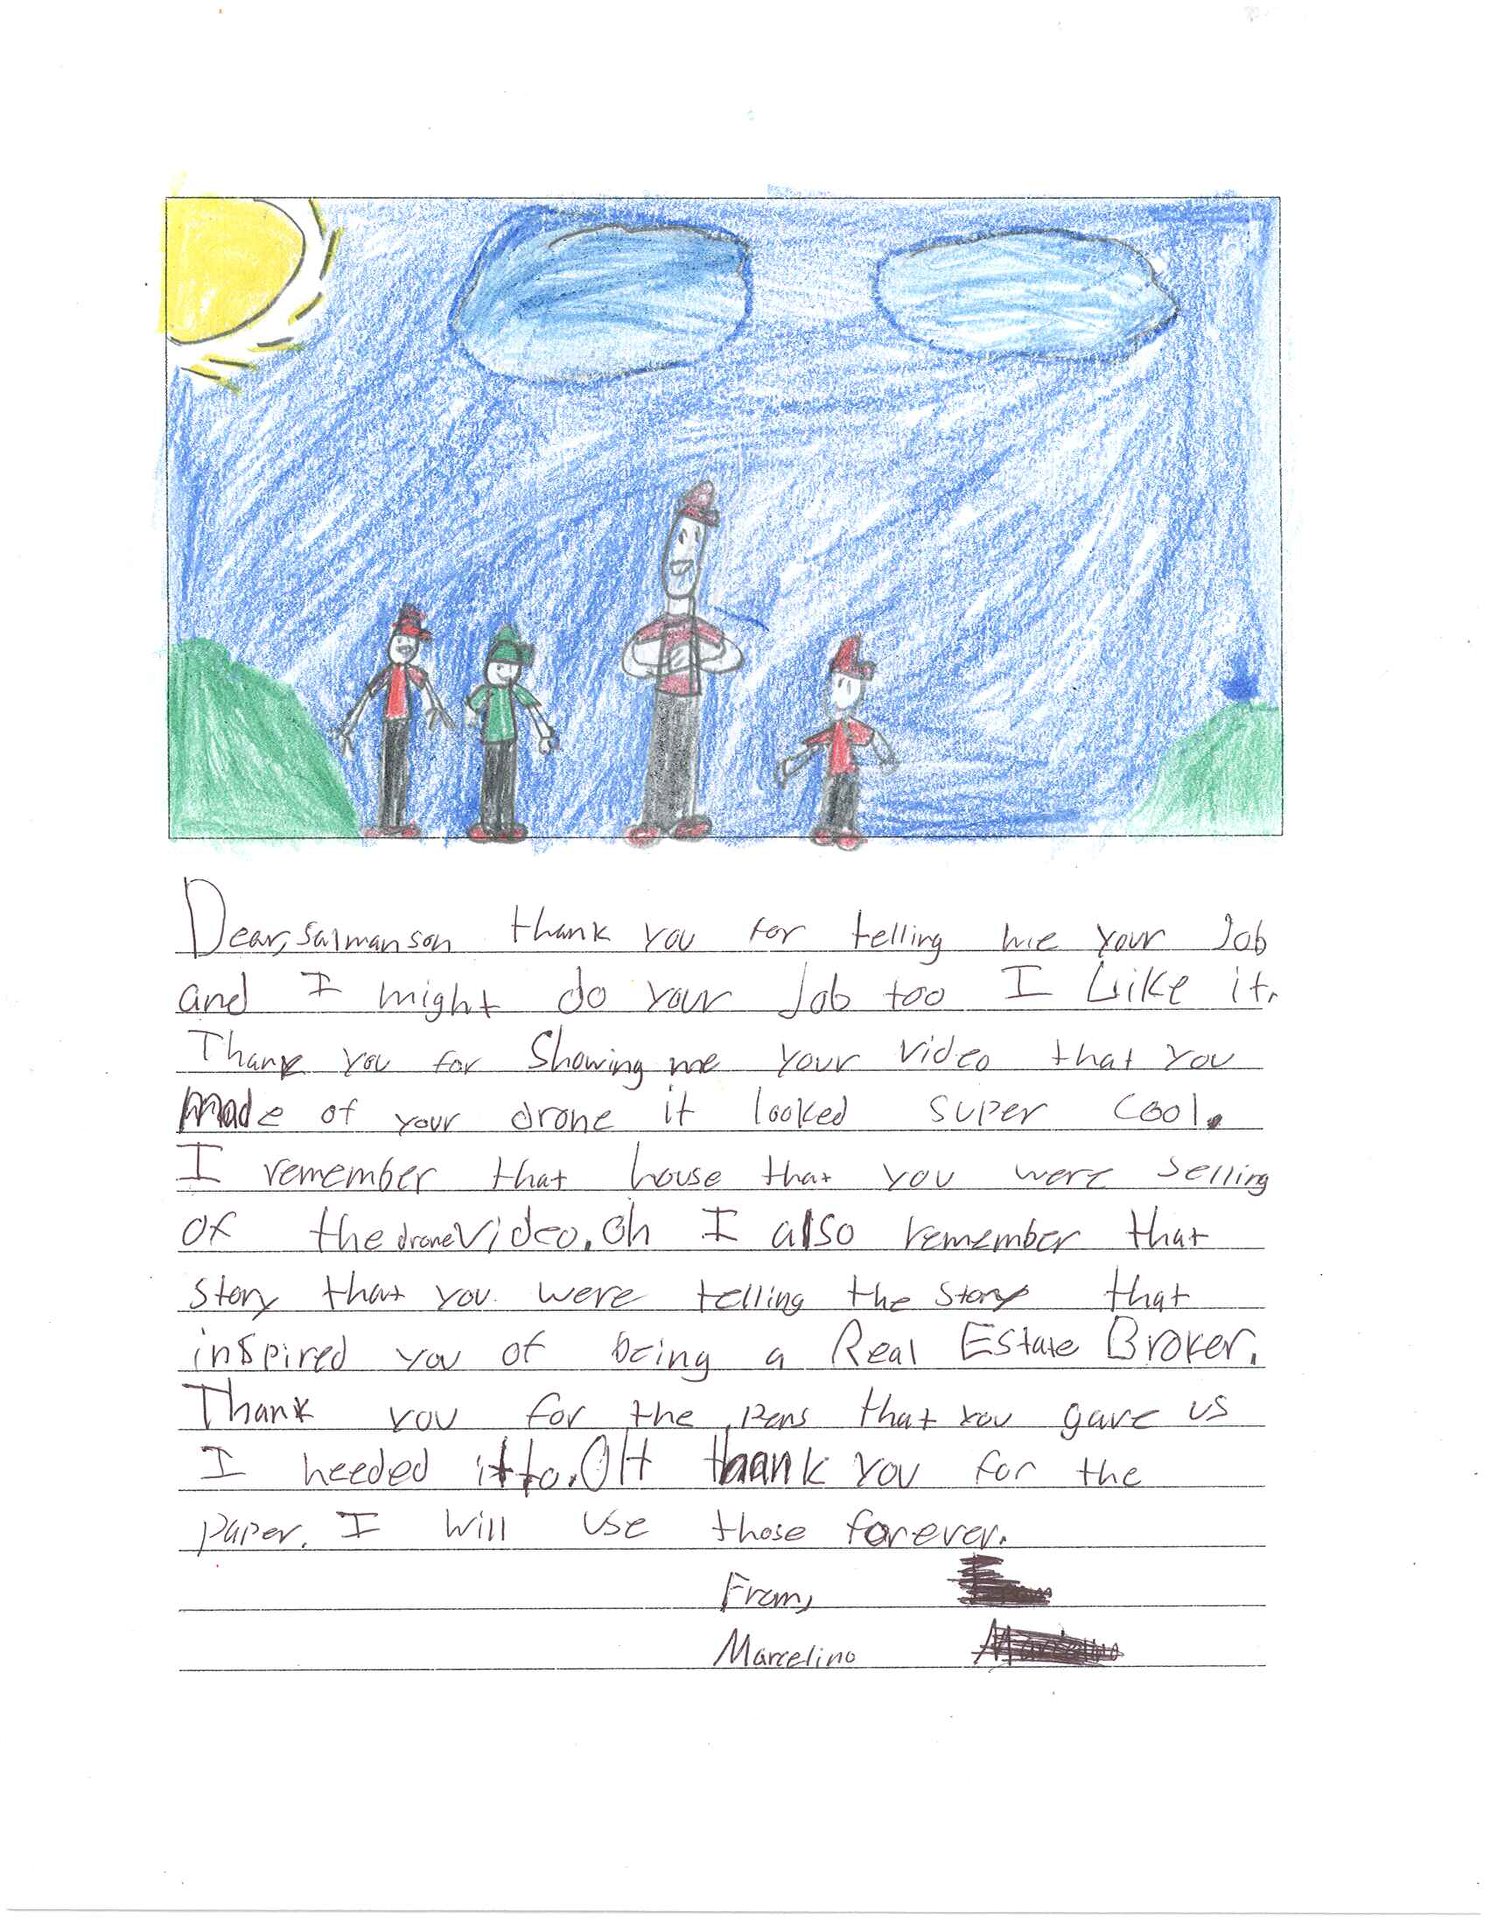 Dear, salmanson thank you for telling me your Job
and I might do your Job too I Like it.
Thank you for Showing me your video that you
made of your drone it looked super cool.
I remember that house that you were selling
of the drone video. Oh I also remember that
story that you were telling the story that
inspired you of being a Real Estate Broker.
Thank you for the pens that you gave us
I needed it to. OH thank you for the
paper. I will use those forever.
From,
Marcelino Marcelino